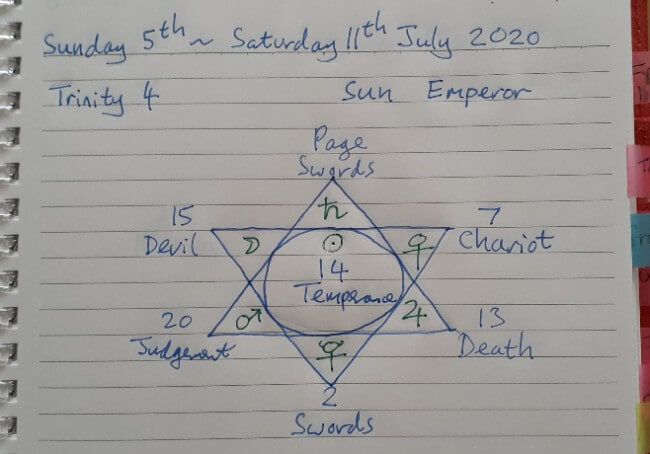 Sunday 5th ~ Saturday 11th July 2020
Trinity 4 Sun Emperor
Page
Swords
♄
15 7
Devil ☽ ☉ ♀ Chariot
14
Temperance
20 ♂ ♃ 13
Judgement ♀ Death
2
Swords